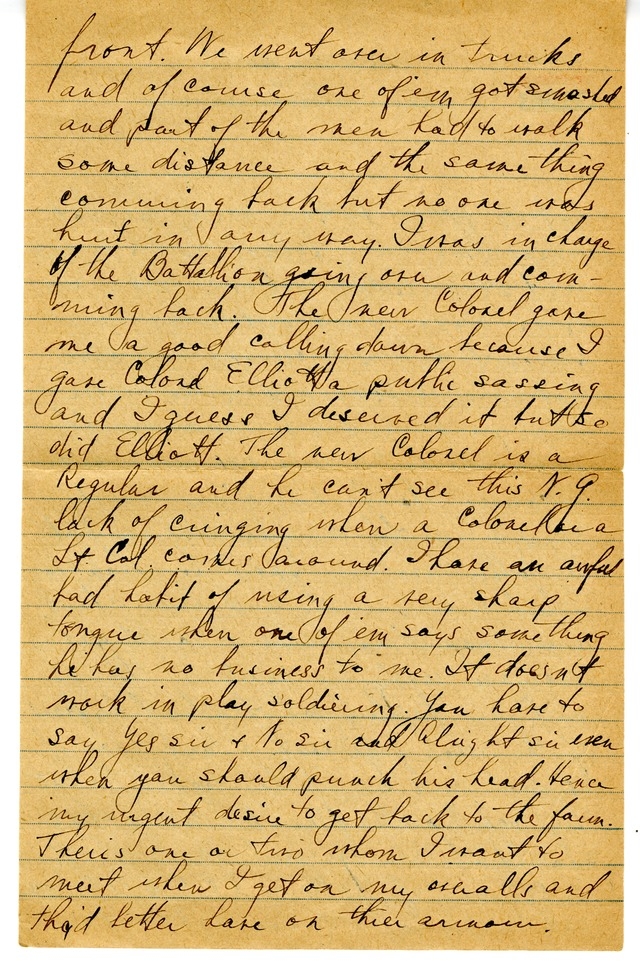 front. We went over in trucks
and of course one of em got smashed
and part of the men had to walk
some distance and the same thing
comming back but no one was
hurt in any way. I was in charge
of the Battallion going over and com-
ming back. The new Colonel gave
me a good calling down because I
gave Colonel Elliott a public sassing
and I guess I deserved it but so
did Elliott. The new Colonel is a
Regular and he can't see this N.G.
lack of cringing when a Colonel or a
Lt Col. comes around. I have an awful
bad habit of using a very sharp
tongue when one of em says something
he has no business to me. It doesn't
work in play soldiering. You have to
say Yes sir & No sir and Alright sir even
when you should punch his head. Hence
my urgent desire to get back to the farm.
Theris one or two whom I want to
meet when I get on my overalls and
they'd better have on their armour.